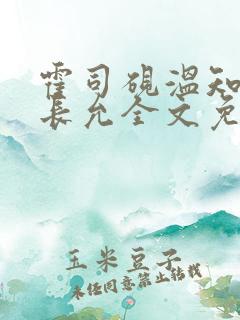 霍司砚温知
长允全文免
玉米豆子
未经同意禁止转载